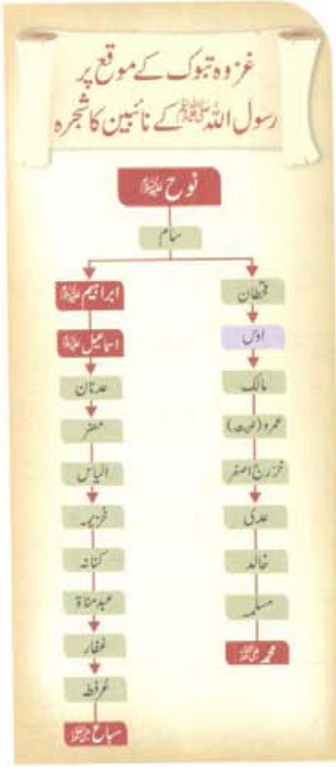 غزوہ تبوک کے موقع پر
رسول اللہ ﷺ کے نائبین کا شجرہ
نوح علیہ السلام
سام
قحطان
اوس
مالک
عمرو (نبیت)
خزرج اصغر
عدی
خالد
مسلمہ
محمد رضی اللہ عنہ
ابراہیم علیہ السلام
اسماعیل علیہ السلام
عدنان
مضر
الیاس
خزیمہ
کنانہ
عبدمناۃ
غفار
عُرفطہ
سباع رضی اللہ عنہ